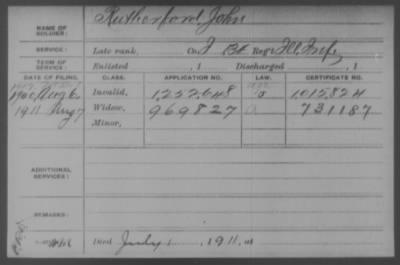 NAME OF SOLDIER: Rutherford, John
SERVICE: Late rank, Co. I Reg't Ill. Inf.
TERM OF SERVICE: Enlisted , 1 Discharged , 1
DATE OF FILING. CLASS. APPLICATION NO. LAW. CERTIFICATE NO.
1900 Aug 6 Invalid, 1,252,648 1,015,824
1911 Aug 7 Widow, 969827 731187
Minor,
ADDITIONAL SERVICES:
REMARKS:
Died July 1911